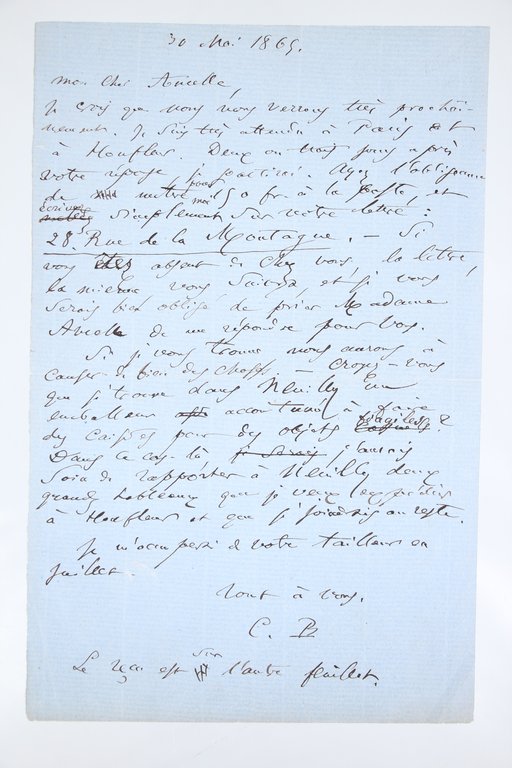 30 Mai 1865.
mon cher Ancelle,
Je crois que nous nous verrons très prochai-
nement. Je suis très attendu à Paris et
à Honfleur. Deux ou trois jours après
votre réponse, je partirai. Ayez l'obligeance
de mettre pour moi 50 fr. à la poste, et
écrivez simplement sur votre lettre :
28, Rue de la Montagne. — Si
vous êtes absent de chez vous, la lettre,
la mienne vous suivra, et je vous
serais bien obligé de prier Madame
Ancelle de me répondre pour vous.
Si je vous trouve nous aurons à
causer de bien des choses. — Croyez-vous
que je trouve dans Neuilly un
emballeur accoutumé à faire
des caisses pour des objets fragiles ?
Dans ce cas-là j'aurais
soin de rapporter à Neuilly deux
grands tableaux que je veux expédier
à Honfleur et que je joindrais au reste.
Je m'occuperai de votre tailleur en
juillet.
Tout à vous.
C. B
Le reçu est sur l'autre feuillet.